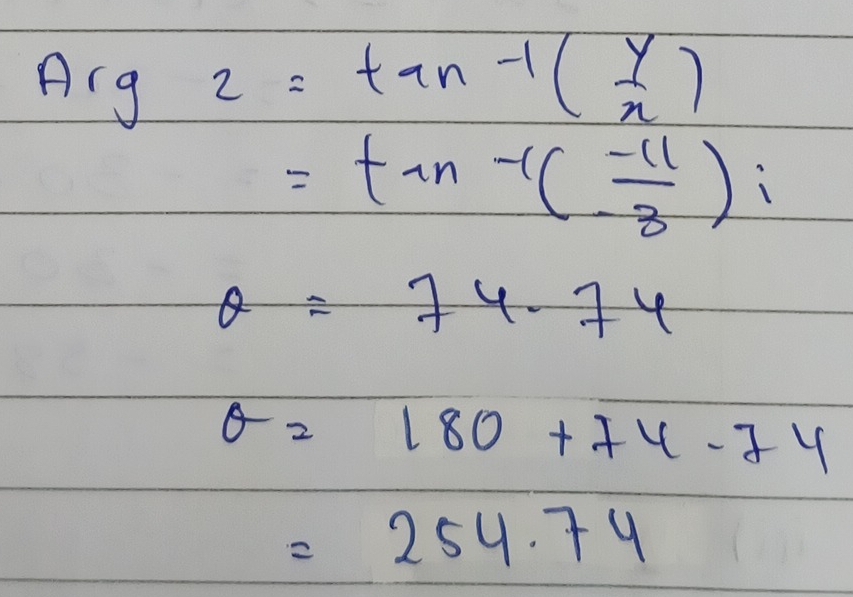 Arg z = tan -1 ( y / x )
= tan -1 ( -11 / -3 ) i
θ = 74.74
θ = 180 + 74.74
= 254.74